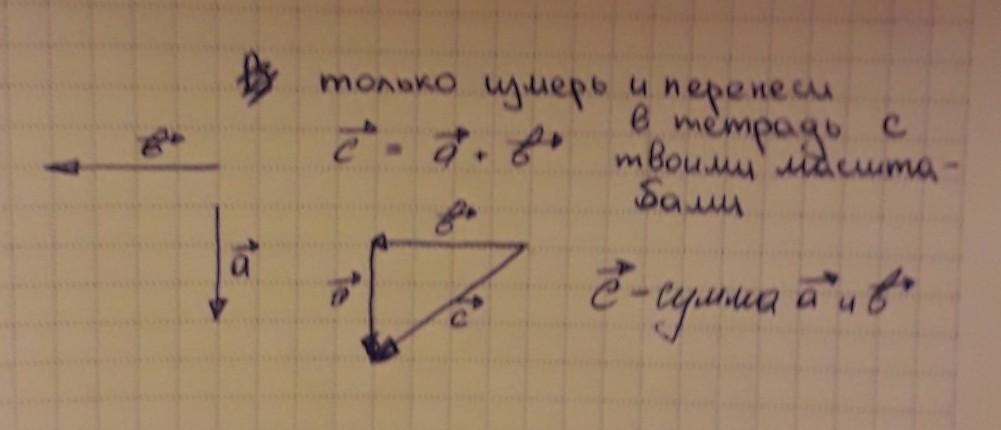 только измерь и перенеси
в тетрадь с
твоими масшта-
бами
в⃗
c⃗ = a⃗ + в⃗
a⃗
в⃗
a⃗
c⃗
c⃗ - сумма a⃗ и в⃗